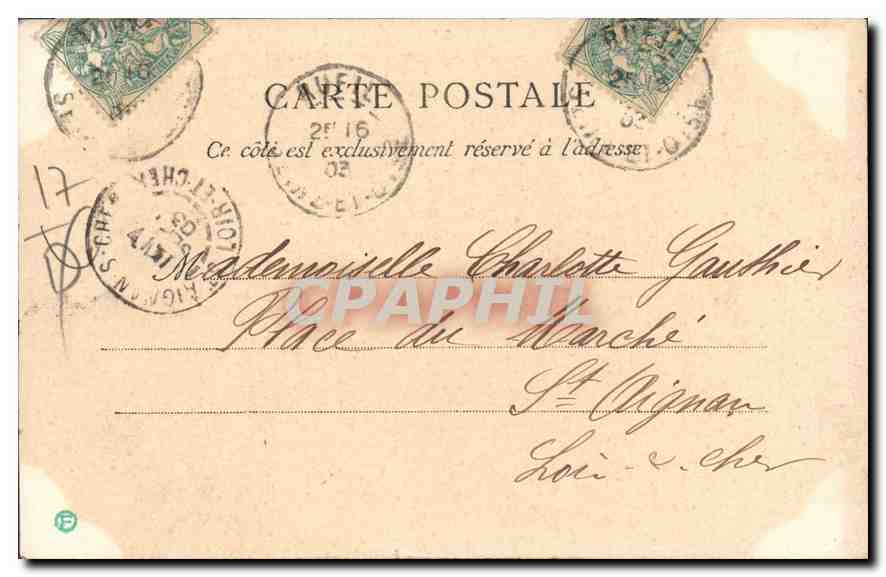 CARTE POSTALE
Ce côté est exclusivement réservé à l'adresse
RUEIL
2E 16
03
SEINE-ET-OISE
17
LOIR-ET-CHER
ST AIGNAN S-CHER
03
Mademoiselle Charlotte Gauthier
CPAPHIL
Place du Marché
St Aignan
Loir-&-Cher
F